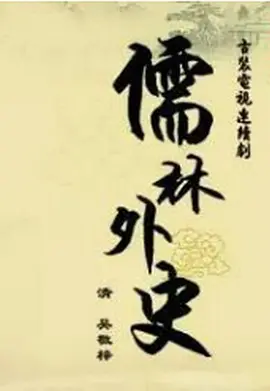 古裝電視連續劇
儒林外史
清 吴敬梓